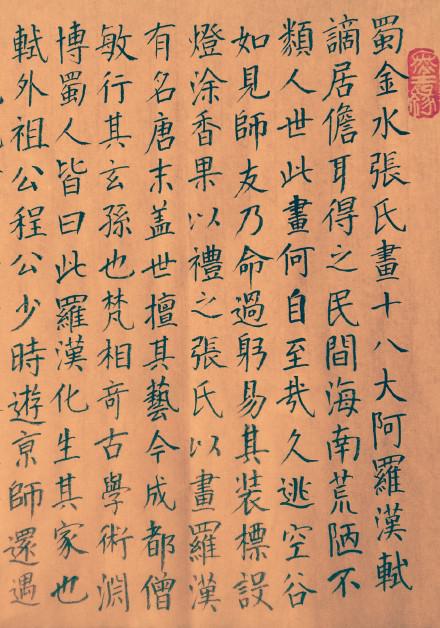 蜀金水張氏畫十八大阿羅漢軾
謫居儋耳得之民間海南荒陋不
類人世此畫何自至哉久逃空谷
如見師友乃命過躬易其装標設
燈涂香果以禮之張氏以畫羅漢
有名唐末盖世擅其藝今成都僧
敏行其玄孫也梵相竒古學術淵
博蜀人皆曰此羅漢化生其家也
軾外祖公程公少時遊亰師還遇